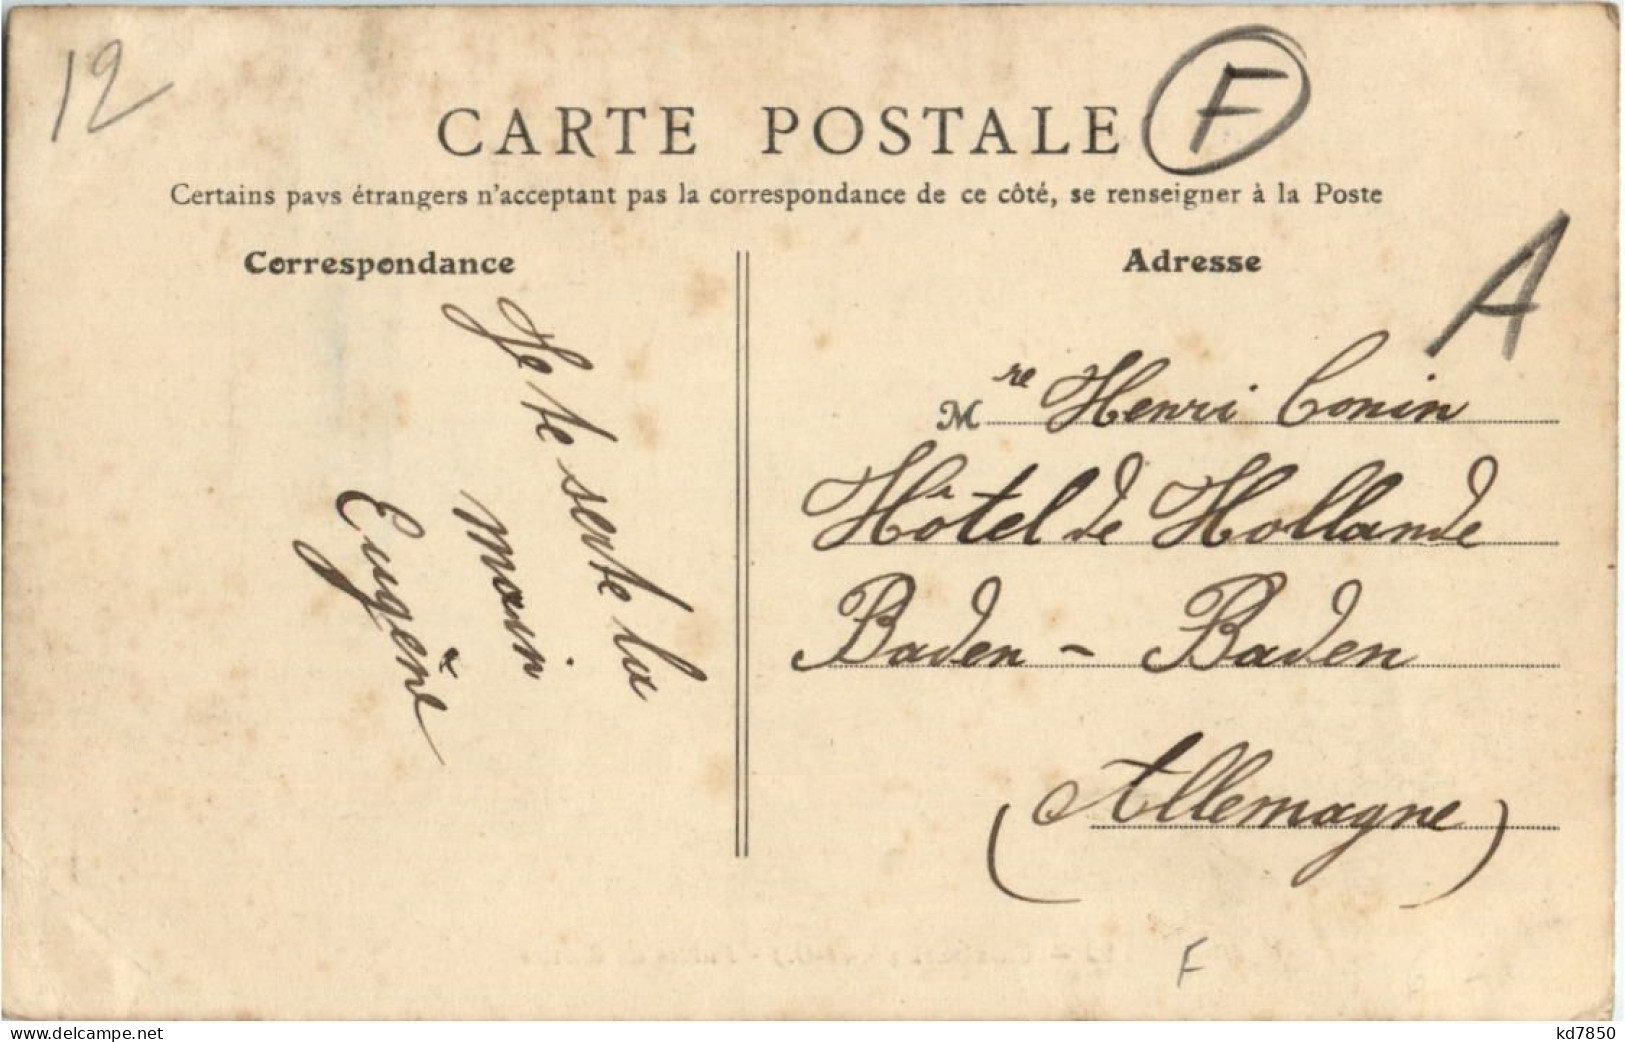 12
CARTE POSTALE
F
Certains pays étrangers n'acceptant pas la correspondance de ce côté, se renseigner à la Poste
Correspondance
Je te serte la
main
Eugène
Adresse
A
M re Henri Conin
Hôtel de Hollande
Baden - Baden
(Allemagne)
F
www.delcampe.net
kd7850